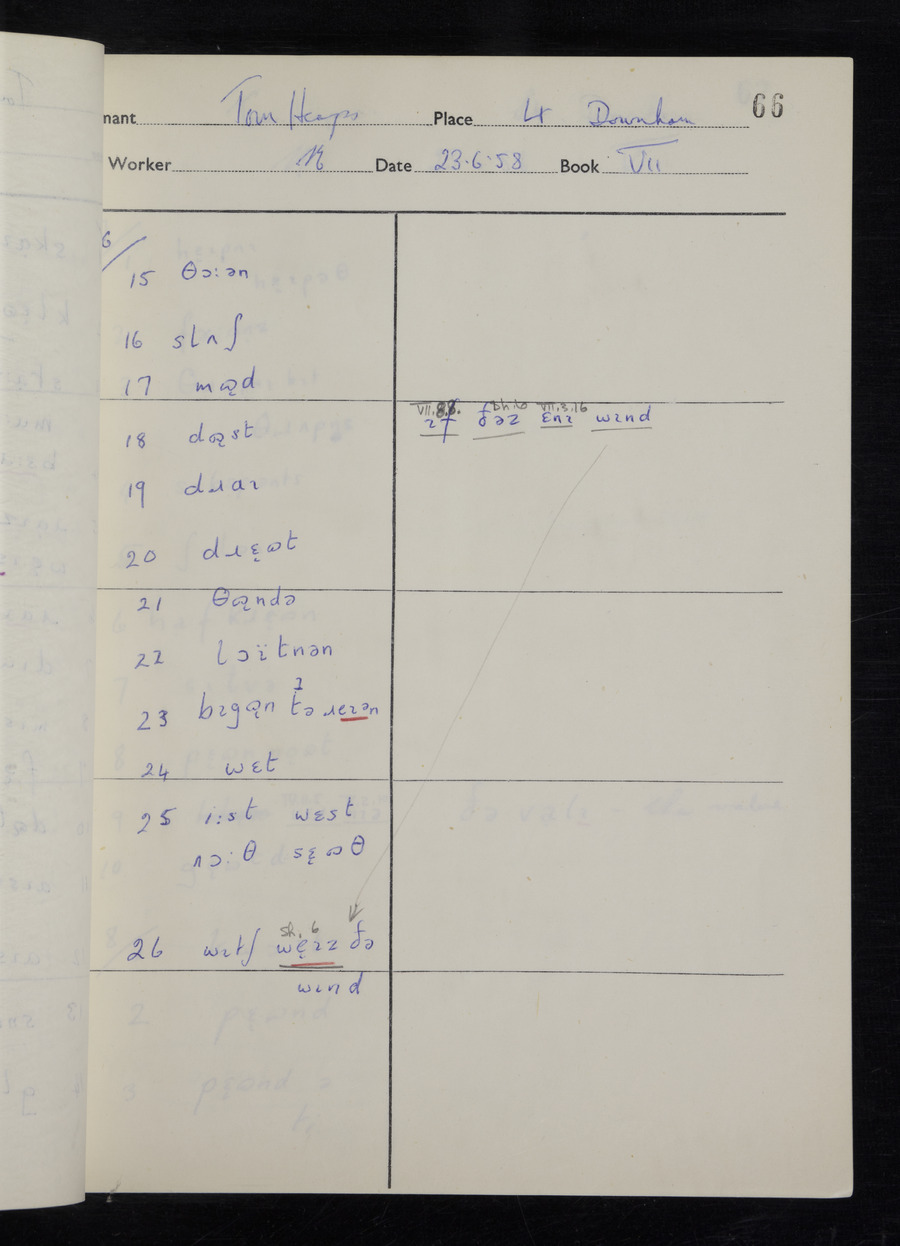 66
nant Tom Heaps Place Lt Downham
Worker Date 23·6·58 Book VII
6/
15 θɔːən
16 slʌʃ
17 mɐ̨d
18 dɐ̨st
VII.8.8. sh.6 VII.3.16
ɪf ðəz ɛnɪ wɪnd
19 dɹaɪ
20 dɹɛ̨ɷt
21 θɐ̨ndə
22 lɔïtnən
23 bɪgɐ̨n tə ɹeɪən
24 wɛt
25 iːst wɛst
nɔːθ sɛ̨ɷθ
sh. 6
26 wɪtʃ wɛ̨ɪz ðə
wɪnd